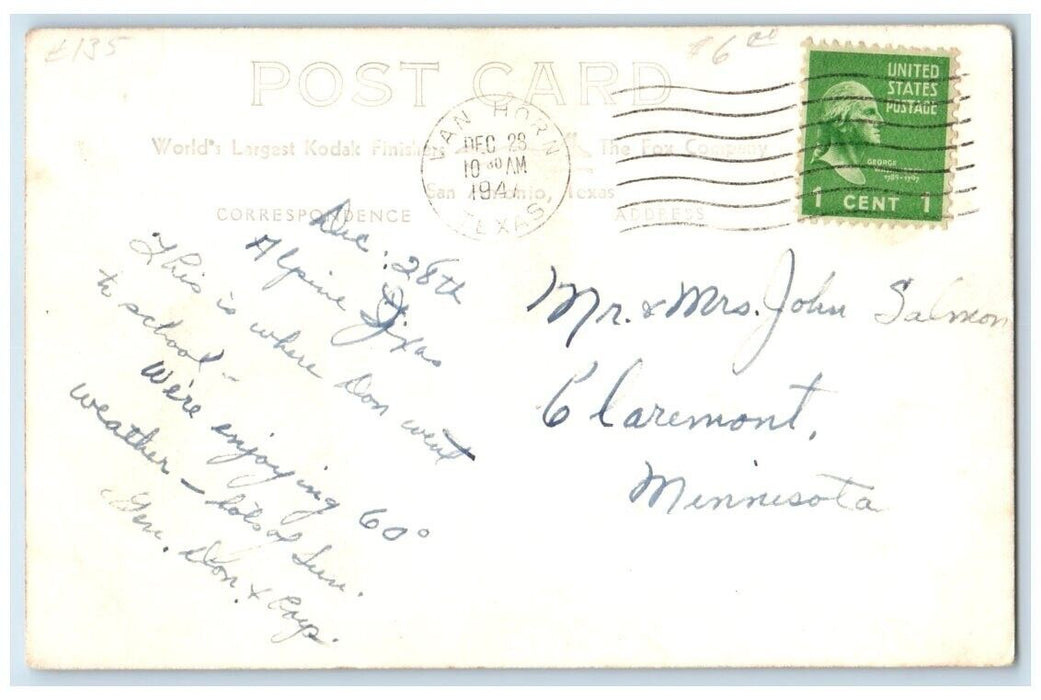 #135
$6.00
POST CARD
World's Largest Kodak Finishers The Fox Company
San Antonio, Texas
CORRESPONDENCE
ADDRESS
VAN HORN
DEC 28
10 30 AM
TEXAS.
UNITED
STATES
POSTAGE
GEORGE
WASHINGTON
1789-1797
1 CENT 1
Dec. 28th
Alpine Texas
This is where Don went
to school -
We're enjoying 60°
weather - lots of Sun.
Gen. Don. &
Mr. & Mrs. John Salmon
Claremont,
Minnesota